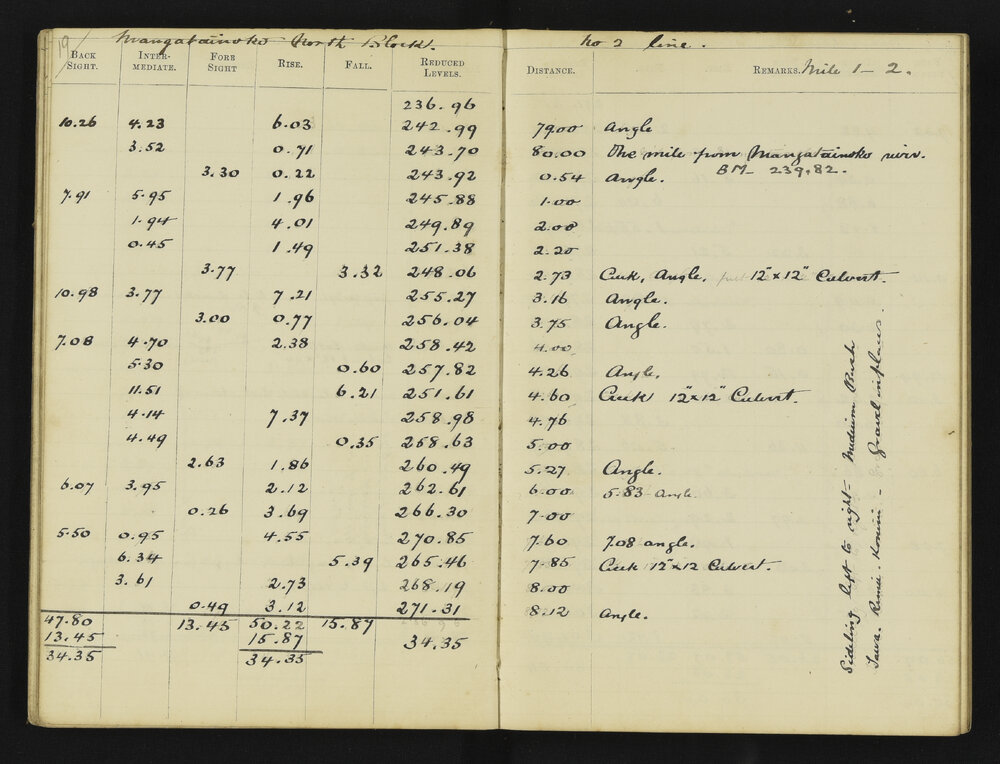 19
Mangatainoko North Block.
No 2 line.
BACK SIGHT. INTERMEDIATE. FORE SIGHT RISE. FALL. REDUCED LEVELS. DISTANCE. REMARKS. Mile 1 - 2.
236.96
10.26 4.23 6.03 242.99 79.00 Angle
3.52 0.71 243.70 80.00 One mile from Mangatainoko river.
BM 239.82.
3.30 0.22 243.92 0.54 Angle.
7.91 5.95 1.96 245.88 1.00
1.94 4.01 249.89 2.00
0.45 1.49 251.38 2.20
3.77 3.32 248.06 2.73 Creek, Angle, 12"x12" Culvert.
10.98 3.77 7.21 255.27 3.16 Angle.
3.00 0.77 256.04 3.75 Angle.
7.08 4.70 2.38 258.42 4.00
5.30 0.60 257.82 4.26 Angle.
11.51 6.21 251.61 4.60 Creek 12"x12" Culvert.
4.14 7.37 258.98 4.76
4.49 0.35 258.63 5.00
2.63 1.86 260.49 5.27 Angle.
6.07 3.95 2.12 262.61 6.00 5.83 Angle.
0.26 3.69 266.30 7.00
5.50 0.95 4.55 270.85 7.60 7.08 angle.
6.34 5.39 265.46 7.85 Creek 12"x12 Culvert.
3.61 2.73 268.19 8.00
0.49 3.12 271.31 8.12 angle.
47.80 13.45 50.22 15.87
13.45 15.87 34.35
34.35 34.35
Sideling left to right - Medium Bush
Tawa. Rimu. Konini - Gravel in places.